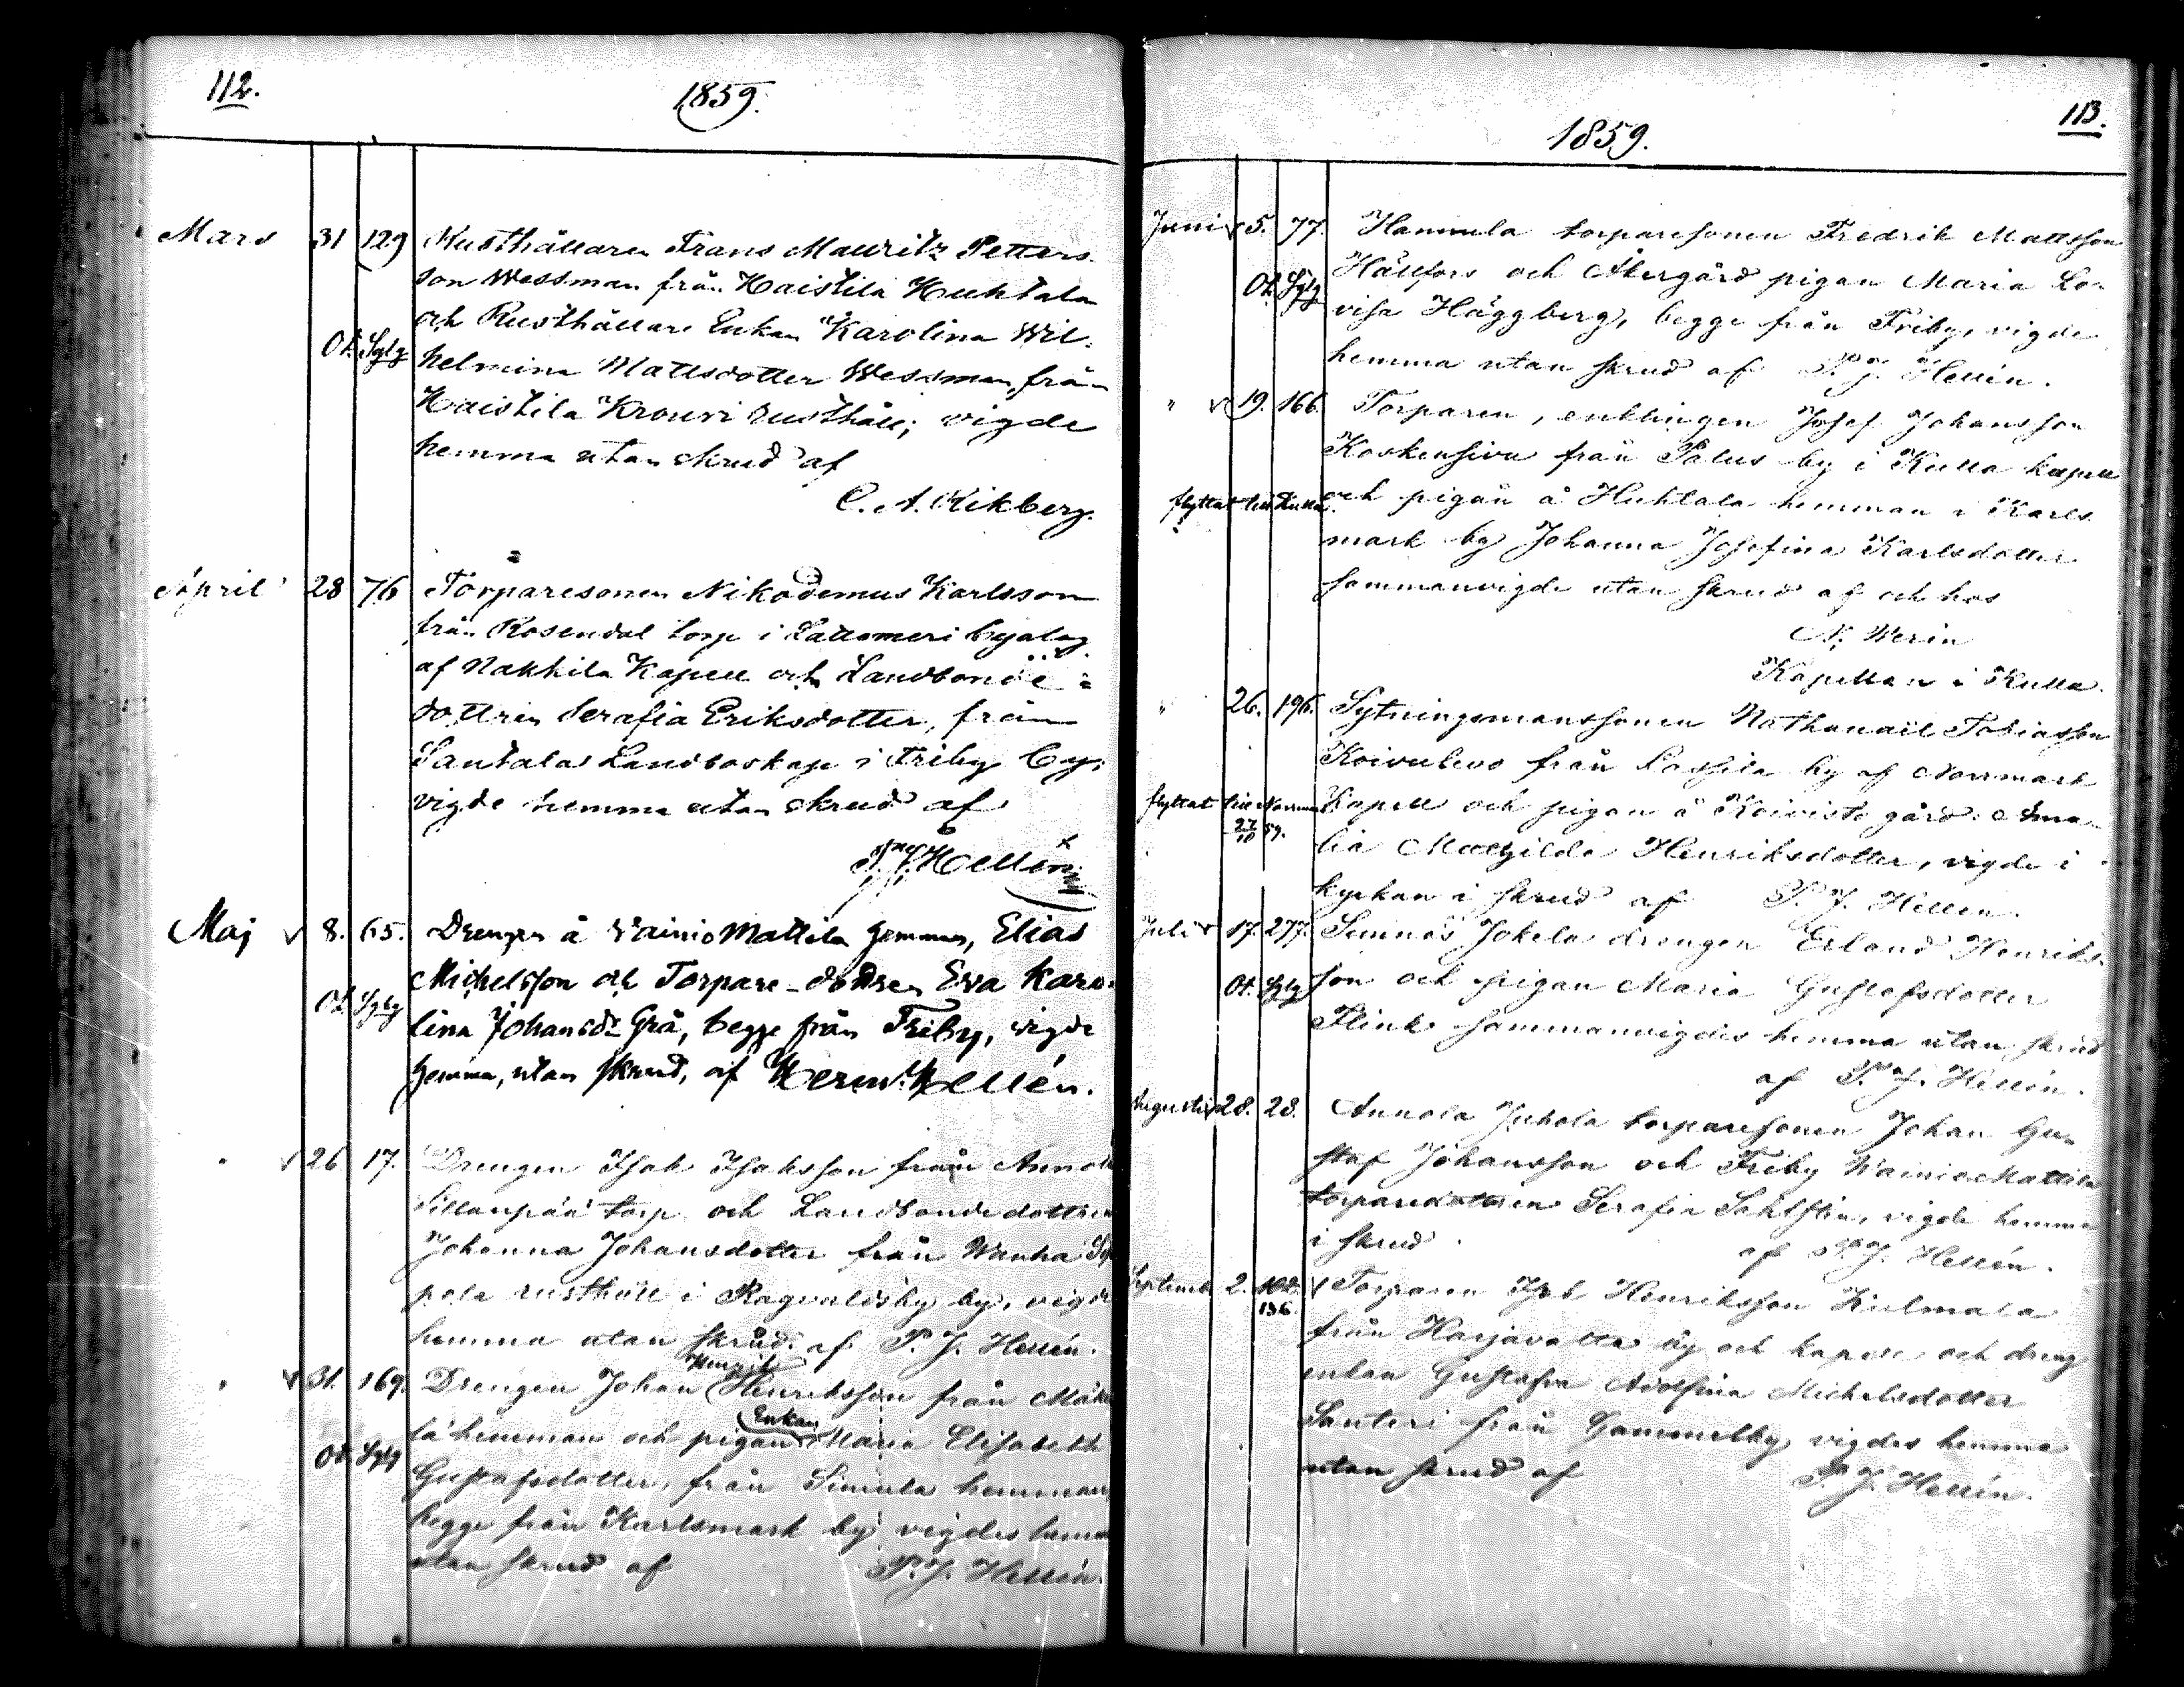 112.
1859.
Mars 31 129 Rusthållaren Frans Mauritz Petters
son Wessman från Haistila Huhtala
och Rusthållare Enkan Karolina Wil-
Ot. Sglg helmina Mattsdotter Wessman från
Haistila Krouvi rusthåll; vigde
hemma utan skrud af
C. A. Rikberg.
April 28 76 Torparesonen Nikodemus Karlsson
från Rosendal torp i Lattomeri byalag
af Nakkila Kapell och Landbonde-
dottren Serafia Eriksdotter, från
Santalas Landboskap i Friby by;
vigde hemma utan skrud af
P. J. Hellén
Maj 8. 65. Drengen å Vainio Mattila hemman, Elias
Michelsson och Torpare-dottren Eva Karo-
Ot. Sglg lina Johansdr Grå, begge från Friby, vigde
hemma, utan skrud, af Herm. Hellén.
" 26. 17. Drengen Isak Isaksson från Annola
Sillanpää torp och Landbondedottren
Johanna Johansdotter från Wanha Sep
pola rusthåll i Ragvaldsby by, vigde
hemma utan skrud af P. J. Hellén.
Henrik
" 31. 169. Drengen Johan Henriksson från Mäke
Enkan
lä hemman och pigan Maria Elisabeth
Ot. Sglg Gustafsdotter, från Simula hemman,
begge från Karlsmark by vigdes hemma
utan skrud af P. J. Hellén.
113.
1859.
Juni 5. 77. Hannula torparesonen Fredrik Mattsson
Ot. Sglg Hällfors och Åkergård pigan Maria Lo-
visa Häggberg, begge från Friby, vigde
hemma utan skrud af P. J. Hellén.
" 19. 166. Torparen, enklingen Josef Johansson
Koskensivu från Palus by i Kulla kapell
flyttat till Kulla. och pigan å Huhtala hemman i Karls
mark by Johanna Josefina Karlsdotter
sammanvigde utan skrud af och hos
N. Werin
Kapellan i Kulla.
" 26. 196. Sytningsmanssonen Nathanaël Tobiasson
Koivulevo från Lassila by af Norrmark
flyttat till Norrmark Kapell och pigan å Koivisto gård Ama-
27/10 59. lia Mathilda Henriksdotter, vigde i
kyrkan i skrud af P. J. Hellén.
Juli 17. 277. Sunnäs Jokela drengen Erland Henriks-
Ot. Sglg son och pigan Maria Gustafsdotter
Flink sammanvigdes hemma utan skrud
af P. J. Hellén.
Augusti 28. 28. Annola Juhola torparesonen Johan Gu-
staf Johansson och Friby Wainio Mattila
torparedottren Serafia Sahlstén, vigde hemma
i skrud. af P. J. Hellén.
Septemb 2. 136. Torparen Henriksson Kulmala
från Harjavalta by och kapell och dreng
enkan Gustafva Adolfina Michelsdotter
Santeri från Gammelby, vigdes hemma
utan skrud af P. J. Hellén.